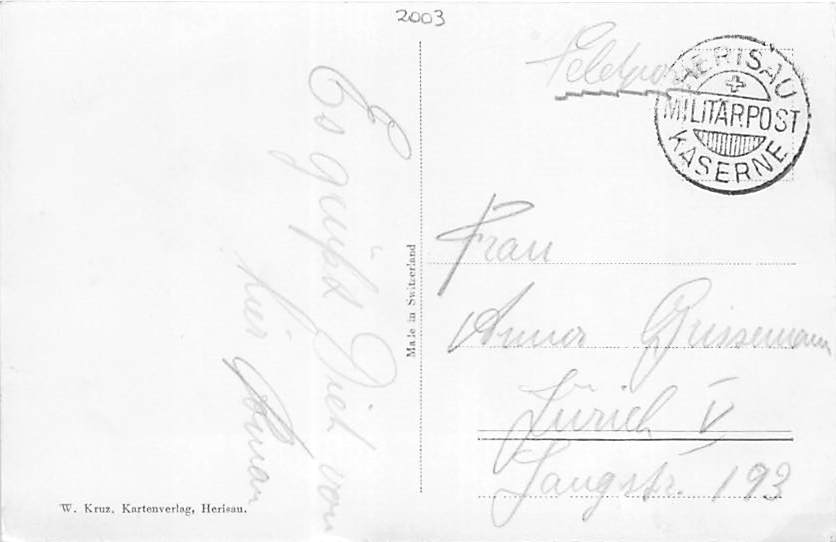 2003
Feldpost
HERISAU
MILITÄRPOST
KASERNE
Es grüßt Dich von
hier
Frau
Anna
Zürich V
Langstr. 193
Made in Switzerland
W. Kruz, Kartenverlag, Herisau.